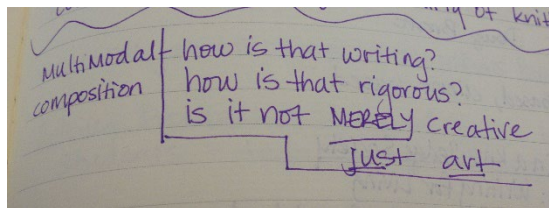 of knit
MultiModal
composition
how is that writing?
how is that rigorous?
is it not MERELY creative
just art